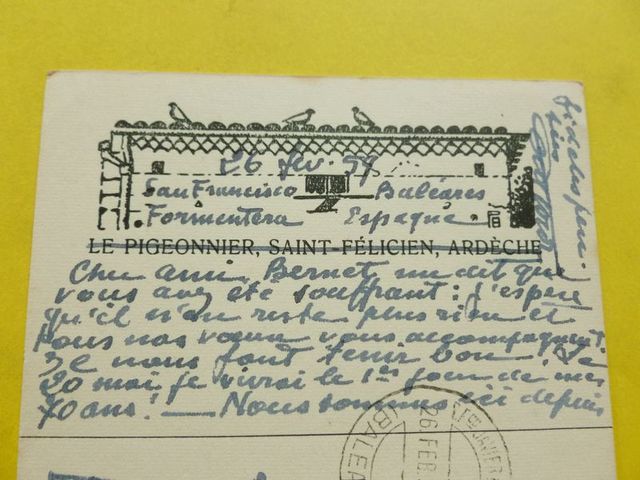 26 fév. 59
San Francisco Baléares
Formentera Espagne
LE PIGEONNIER, SAINT-FÉLICIEN, ARDÈCHE
Cher ami, Bernet me dit que
vous avez été souffrant : j'espère
qu'il n'en reste plus rien et
tous nos vœux vous accompagnent
Il nous faut tenir bon ! Le
20 mai je vivrai le 1er jour de mes
70 ans ! — Nous sommes ici depuis
Fidèles pen-
sées
26 FEB.
BALEA